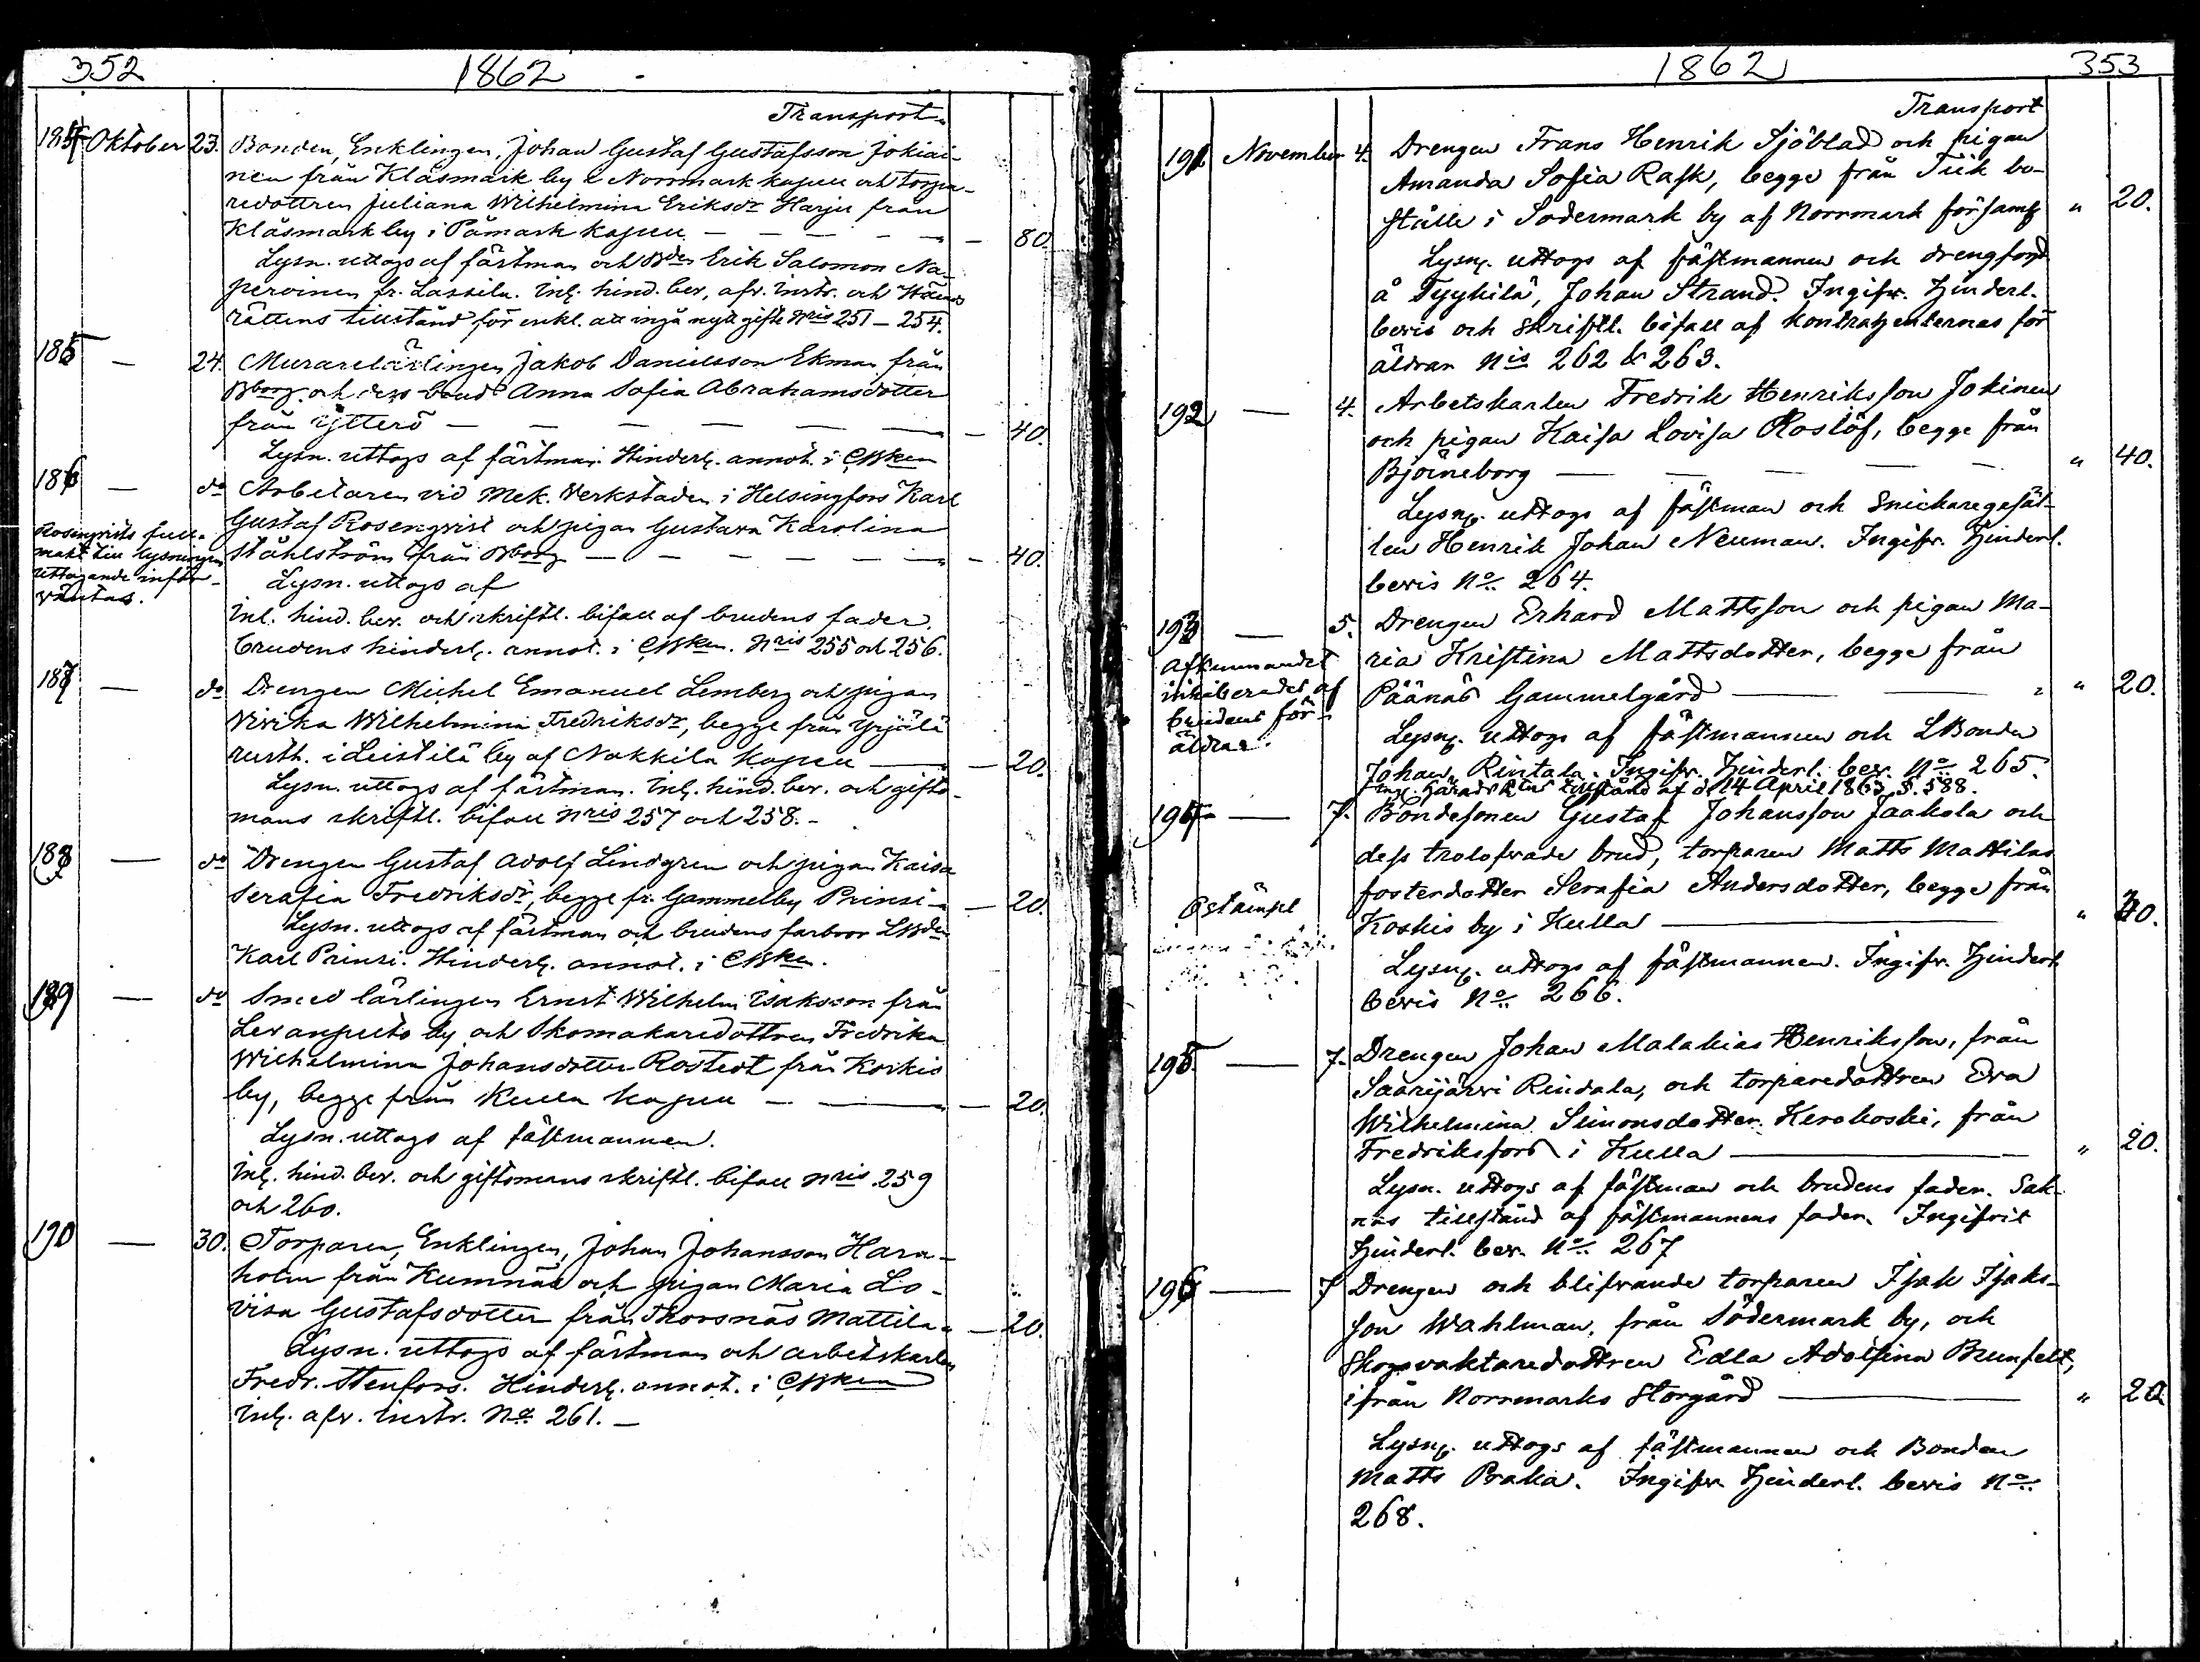 352
1862
Transport
184 Oktober 23. Bonden, Enklingen, Johan Gustaf Gustafsson Jokiai-
nen från Klåsmark by i Norrmark kapell och torpa-
redottren Juliana Wilhelmina Eriksdr Harju från
Klåsmark by i Påmark kapell — — — — — 80.
Lysn. uttogs af fästman och Bden Erik Salomon Na-
pervinen fr. Lassila. Inl. hind. bev., afv. instr. och Härads
rättens tillstånd för enkl. att ingå nytt gifte Nris 251 – 254.
185 — 24. Murarelärlingen Jakob Danielsson Ekman från
Bborg och dess brud Anna Sofia Abrahamsdotter
från Ytterö — — — — — 40.
Lysn. uttogs af fästman. Hinderl. annot. i CBken
186 — do Arbetaren vid Mek. Verkstaden i Helsingfors Karl
Gustaf Rosenqvist och pigan Gustava Karolina
Ståhlström från Bborg — — — — — 40.
Rosenqvists full-
makt till lysningens
uttagande inför-
väntas.
Lysn. uttogs af
Inl. hind. bev. och skriftl. bifall af brudens fader.
Brudens hinderl. annot. i CBken. Nris 255 och 256.
187 — do Drengen Michel Emanuel Lemberg och pigan
Vivika Wilhelmina Fredriksdr, begge från Yrjälä
rusth. i Leistilä by af Nakkila kapell — — 20.
Lysn. uttogs af fästman. Inl. hind. bev. och gifto-
mans skriftl. bifall Nris 257 och 258. –
188 — do Drengen Gustaf Adolf Lindgren och pigan Kaisa
Serafia Fredriksdr, begge fr. Gammelby Prinsi — 20.
Lysn. uttogs af fästman och brudens farbror LBden
Karl Prinsi. Hinderl. annot. i CBken.
189 — do Smed lärlingen Ernst Wilhelm Isaksson från
Levanpelto by och Skomakaredottren Fredrika
Wilhelmina Johansdotter Rostedt från Koskis
by, begge från Kulla kapell — — — 20.
Lysn. uttogs af fästmannen.
Inl. hind. bev. och giftomans skriftl. bifall Nris 259
och 260.
190 — 30. Torparen, Enklingen, Johan Johansson Hara-
holm från Kumnäs och pigan Maria Lo-
visa Gustafsdotter från Thorsnäs Mattila — 20.
Lysn. uttogs af fästman och arbetskarlen
Fredr. Stenfors. Hinderl. annot. i CBken
Inl. afv. instr. No 261. –
1862
353
Transport
191 November 4. Drengen Frans Henrik Sjöblad och pigan
Amanda Sofia Rask, begge från Tuk bo-
ställe i Södermark by af Norrmark församlg " 20.
Lysng. uttogs af fästmannen och drengford
å Tyykilä, Johan Strand. Ingifv. Hinderl.
bevis och skriftl. bifall af kontrahenternas för
äldrar Nis 262 & 263.
192 — 4. Arbetskarlen Fredrik Henriksson Jokinen
och pigan Kaisa Lovisa Roslöf, begge från
Björneborg — — — — " 40.
Lysng. uttogs af fästman och Snickaregesäl-
len Henrik Johan Neuman. Ingifv. Hinderl.
bevis No 264.
193 — 5. Drengen Erhard Mattsson och pigan Ma-
ria Kristina Mattsdotter, begge från
Päänäs Gammelgård — — " 20.
Afkunnandet
inhiberades af
brudens för-
äldrar.
Lysng. uttogs af fästmannen och LBonden
Johan Rintala. Ingifv. Hinderl. bev. No 265.
Ingl. Härads Rtns tillstånd af d. 14 April 1863 §. 588.
194 — 7. Bondesonen Gustaf Johansson Jaakola och
dess trolofvade brud, torparen Matts Mattilas
fosterdotter Serafia Andersdotter, begge från
Koskis by i Kulla — " 40.
Ostämpl
Lysng. uttogs af fästmannen. Ingifv. Hinderl.
bevis No 266.
195 — 7. Drengen Johan Malakias Henriksson, från
Saarijärvi Rindala, och torparedottren Eva
Wilhelmina Simonsdotter Kerokoski, från
Fredriksfors i Kulla — " 20.
Lysn. uttogs af fästman och brudens fader. Sak-
nas tillstånd af fästmannens fader. Ingifvit
Hinderl. bev. No 267
196 — 7 Drengen och blifvande torparen Isak Isaks-
son Wahlman, från Södermark by, och
Skogsvaktaredottren Edla Adolfina Brunfelt,
ifrån Norrmarks Storgård — " 20.
Lysng. uttogs af fästmannen och Bonden
Matts Praka. Ingifv. Hinderl. bevis No
268.